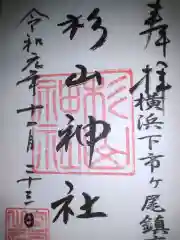 奉拝
横浜下市ヶ尾鎮守
杉山神社
令和元年十一月二十三日